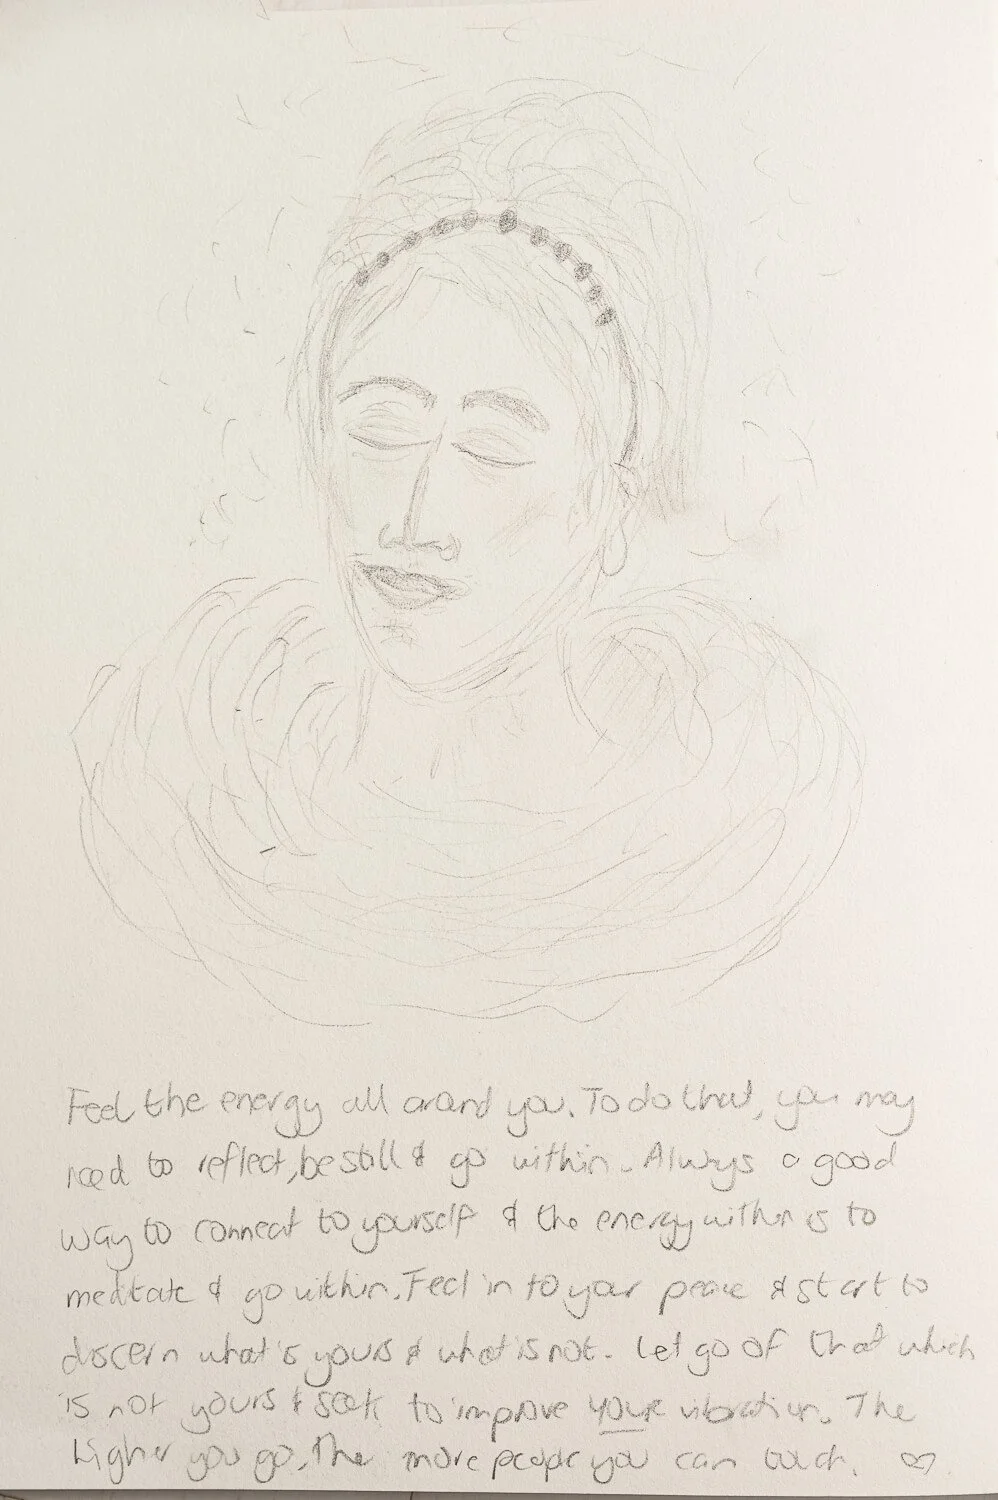 Feel the energy all around you. To do that, you may
need to reflect, be still & go within. Always a good
way to connect to yourself & the energy within is to
meditate & go within. Feel in to your peace & start to
discern what's yours & what is not. Let go of that which
is not yours & seek to improve your vibration. The
higher you go, the more people you can touch.